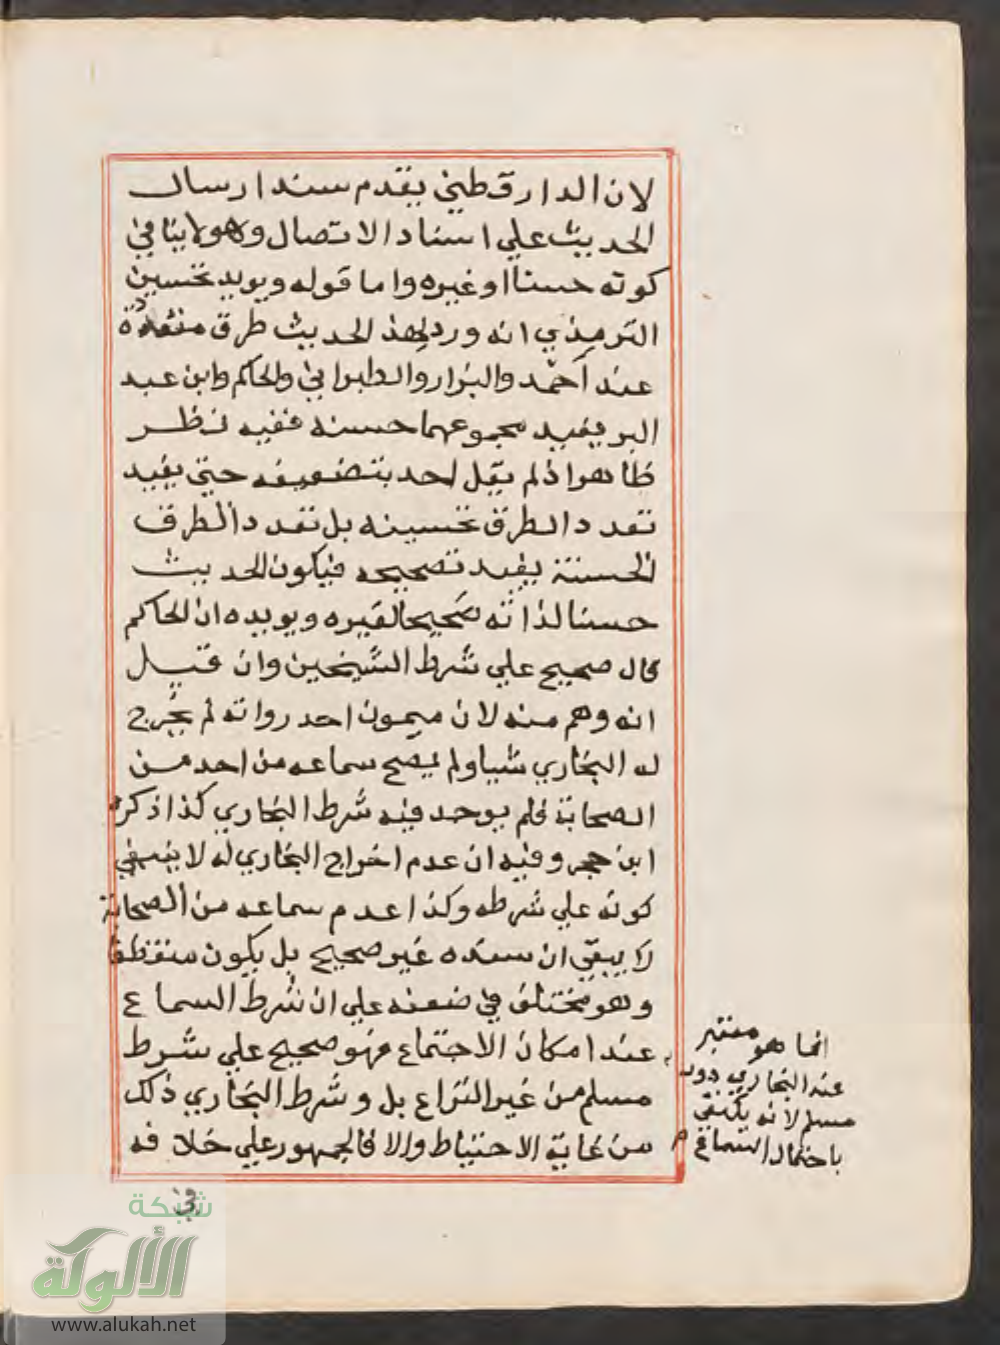 لان الدارقطني يقدم سند ارسال
الحديث علي اسناد الاتصال وهو لا ينافي
كونه حسنا او غيره واما قوله ويويد تحسين
الترمذي انه ورد لهذ الحديث طرق متعددة
عند أحمد والبزار والطبراني والحاكم وابن عبد
البر يفيد مجموعهما حسنه ففيه نظر
ظاهر اذ لم يقل احد بتضعيفه حتي يفيد
تعدد الطرق تحسينه بل تعدد الطرق
الحسنة يفيد تصحيحه فيكون الحديث
حسنا لذاته صحيحا لغيره ويويده ان الحاكم
قال صحيح علي شرط الشيخين وان قيل
انه وهم منه لان ميمون احد رواته لم يخرج
له البخاري شيا ولم يصح سماعه من احد من
الصحابة فلم يوجد فيه شرط البخاري كذا ذكره
ابن حجر وفيه ان عدم اخراج البخاري له لا ينفي
كونه علي شرطه وكذا عدم سماعه من الصحابة
لا ينفي ان سنده غير صحيح بل يكون منقطعا
وهو مختلف في ضعفه علي ان شرط السماع
عند امكان الاجتماع فهو صحيح علي شرط
مسلم من غير النزاع بل وشرط البخاري ذلك
من غاية الاحتياط والا فالجمهور علي خلافه
في
انما هو معتبر
عند البخاري دون
مسلم لانه يكتفي
باحتمال السماع م
شبكة
الألوكة
www.alukah.net